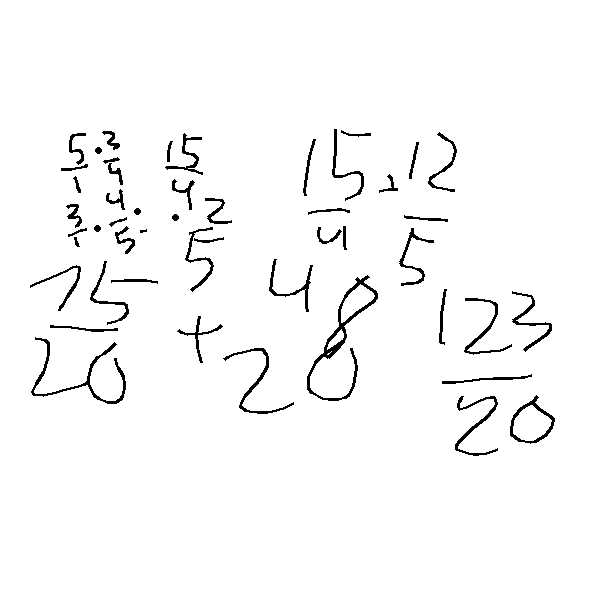 5/1 · 3/4 15/4 15/4 + 12/5
3/1 · 4/5 · · 12/5
75/20 + 48/20 123/20